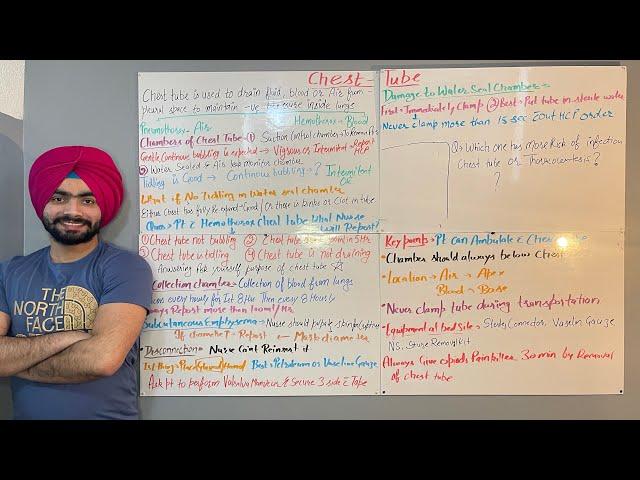 Chest Tube
Chest tube is used to drain fluid, blood or Air from
pleural space to maintain -ve pressure inside lungs
Hemothorax - Blood
Pneumothorax - Air
Chambers of Chest Tube → ① Suction Control chamber → To Remove Air
Gentle Continous bubbling is expected → Vigrous or Intermitent → Report HCP
② Water Sealed & Air leak monitor chamber
Tidling is Good → Continous bubbling → ? Intermitent Ok
What if No Tidling in Water seal chamber
Either Chest has fully Re-expand → Good / Or there is kinks or Clot in tube
Ques → Pt c̄ Hemothorax Chest tube What Nurse
will Report?
① Chest tube not bubbling ② Chest tube
③ Chest tube is tidling ④ Chest tube is not draining
Answering Ask yourself purpose of chest tube
Collection chamber → Collection of blood from lungs
every hourly for 1st 8 Hr Then every 8 Hourly
Report More than 100ml/Hr
Subcutaneous Emphysema → Nurse should palpate skin for crepitus
If diameter ↑ → Report ← Mark diameter
Disconnection → Nurse Can't Reinsert it
1st thing → Place Gloved Hand Best → Petroleum or Vaseline Gauze
Ask pt to perform Valsalva Maneuver & Secure 3 side c̄ Tape
Damage to Water Seal Chamber →
First → Immediately Clamp ② Best → Put tube in sterile water
Never clamp more than 15 sec z̄out HCP order
Q: Which one has More Risk of infection
Chest tube or Thoracentesis?
?
Key points → Pt Can Ambulate c̄ Chest
Chamber should always below Chest
Location → Air → Apex
Blood → Base
Never Clamp tube during transportation
Equipment at bed Side → Sterile Connector, Vaselin Gauze
NS, Suture Removal Kit
Always Give opoids Painkiller 30 min by Removal
of chest tube
THE
NORTH
FACE